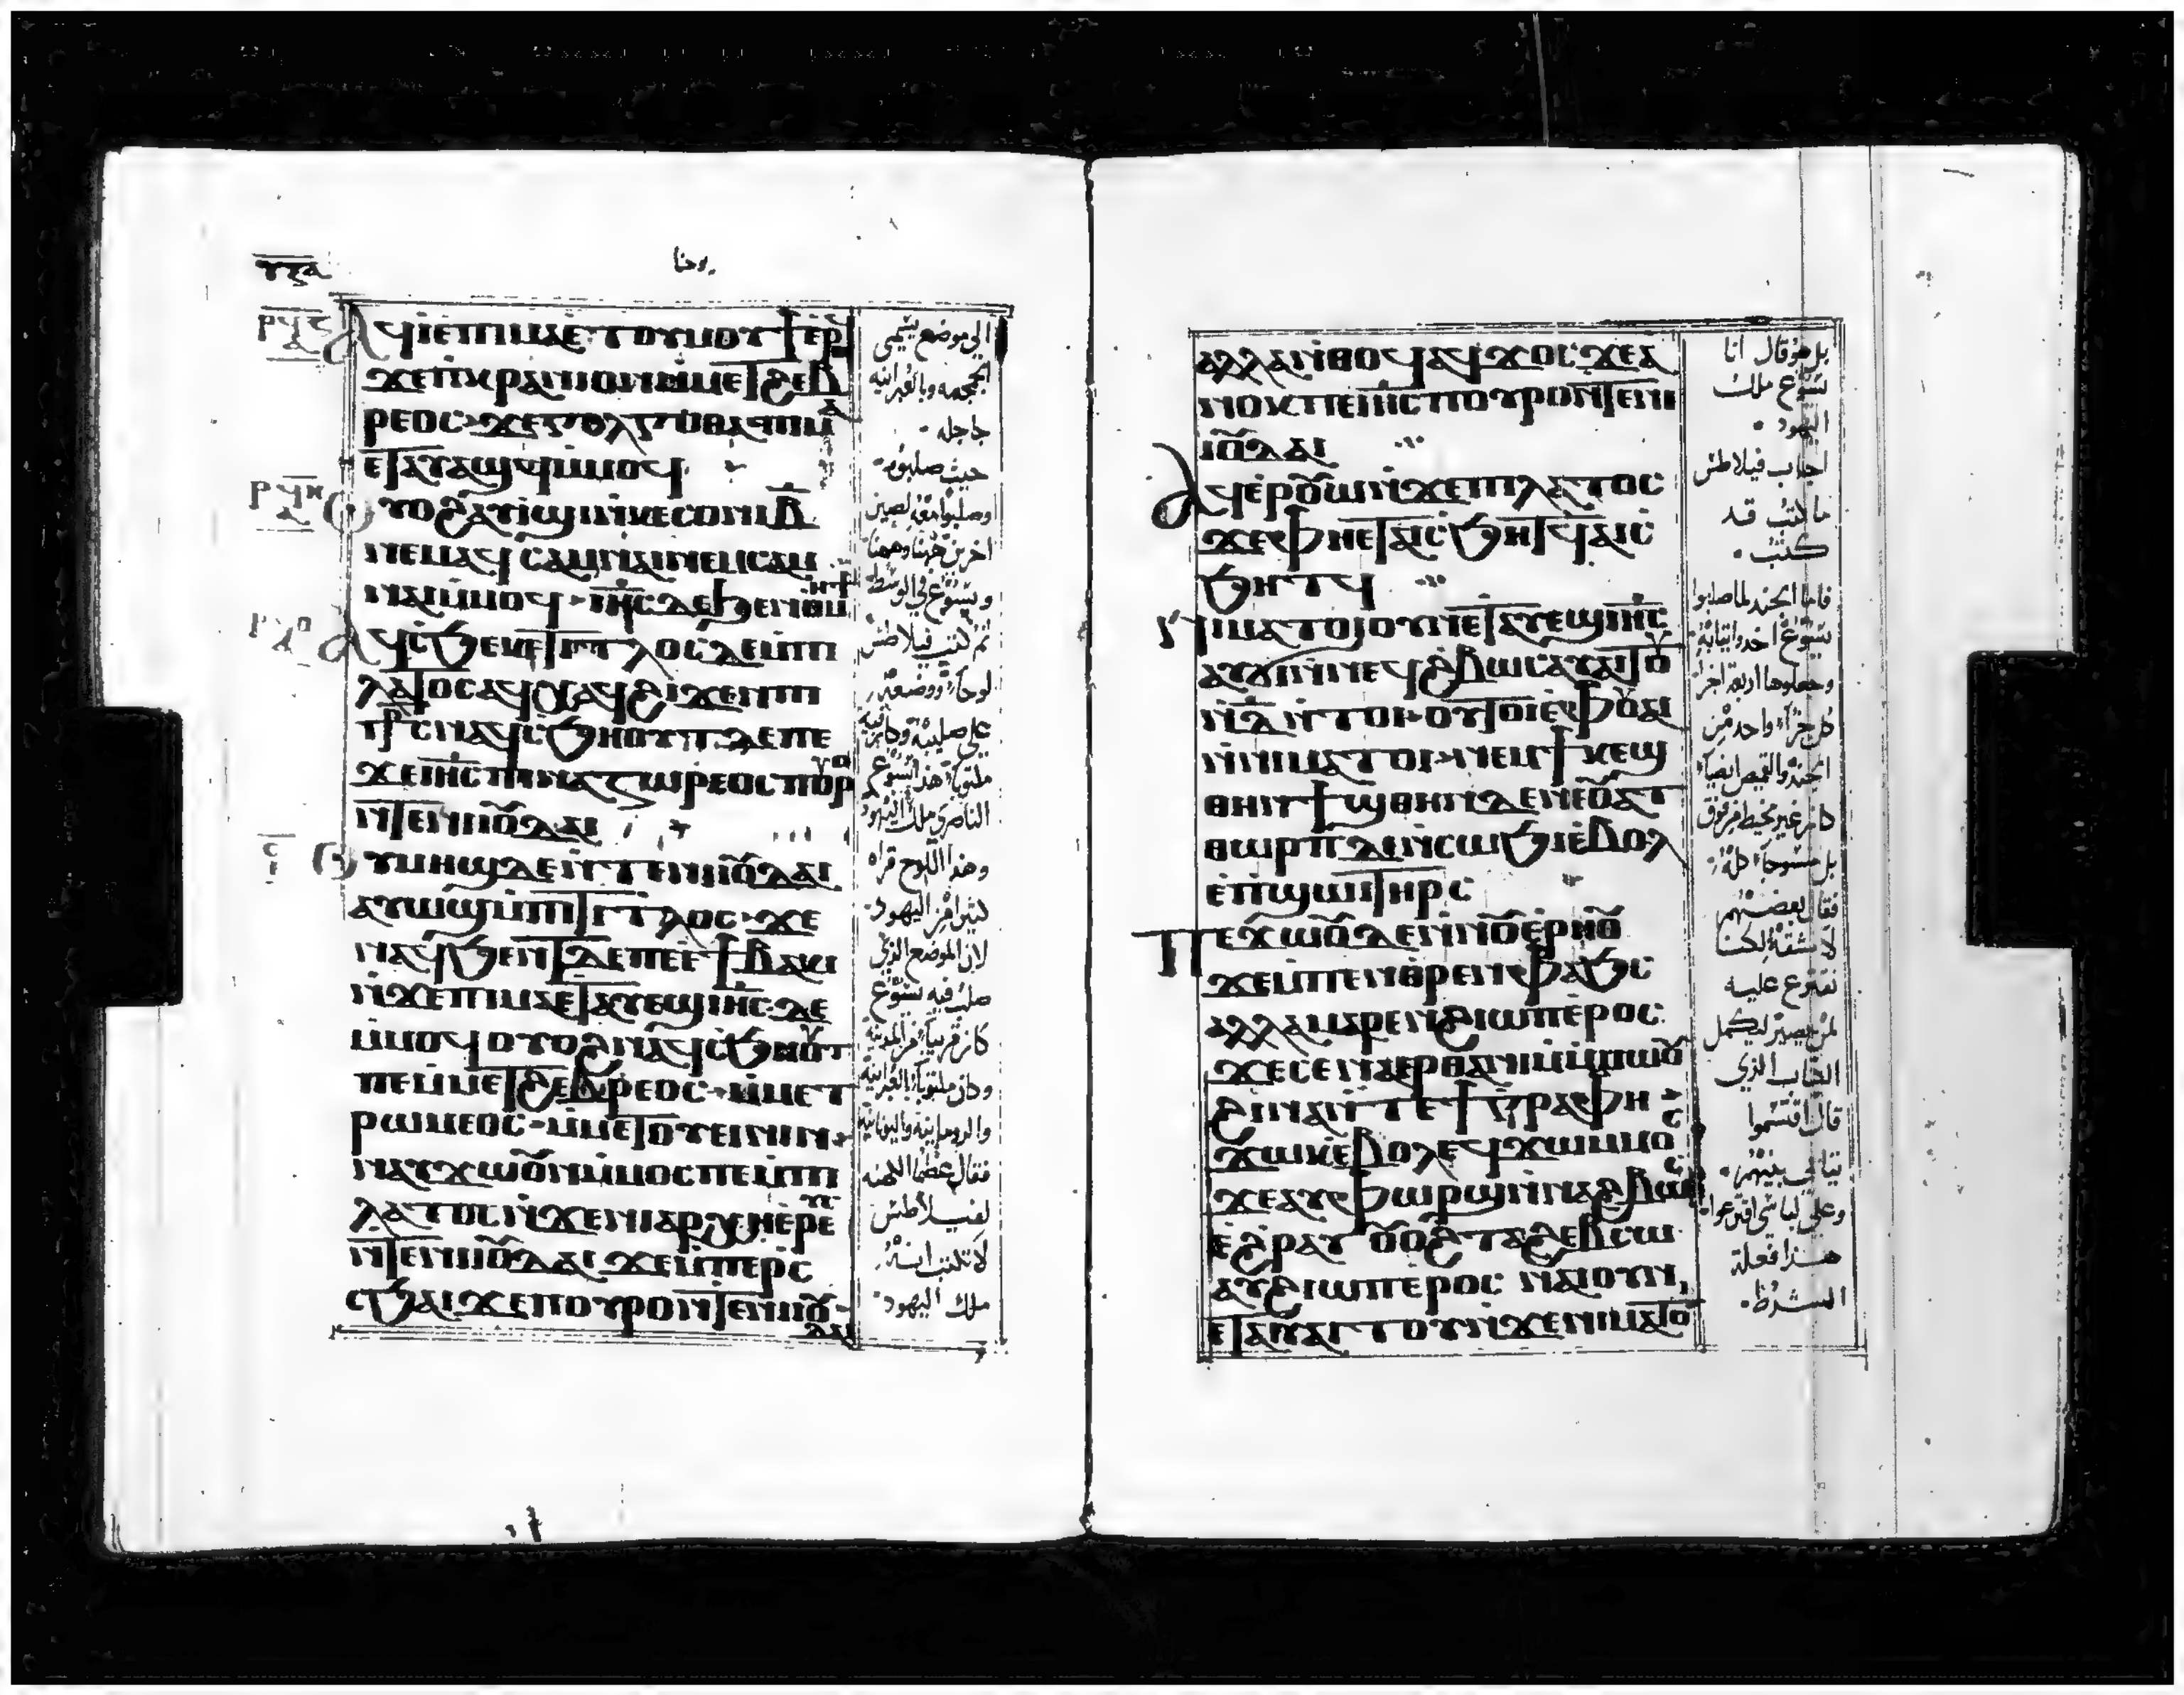 يوحنا
ⲁϥⲓⲉⲡⲓⲙⲁⲉⲧⲟⲩⲙⲟⲩϯⲉⲣ
ϫⲉⲡⲓⲕⲣⲁⲛⲓⲟⲛⲙⲙⲉⲧϩⲉⲃ
ⲣⲉⲟⲥ ϫⲉⲅⲟⲗⲅⲟⲑⲁ ⲡⲓⲙⲁ
ⲉⲧⲁⲩⲁϣϥⲙⲙⲟϥ
ⲟⲩⲟϩⲁⲩⲓϣⲓⲛⲓⲕⲉⲥⲟⲛⲓⲃ
ⲛⲉⲙⲁϥ ⲥⲁⲙⲛⲁⲓⲛⲉⲙⲥⲁⲙ
ⲛⲁⲓⲙⲙⲟϥ ⲓⲏⲥⲇⲉϧⲉⲛⲑⲙⲏϯ
ⲁϥⲥϧⲉⲕⲉⲧⲓⲧⲗⲟⲥⲇⲉⲙⲡⲓ
ⲗⲁⲧⲟⲥⲁϥⲭⲁϥϩⲓϫⲉⲛⲡⲓ
ⲥⲛⲁϥⲥϧⲏⲟⲩⲧⲇⲉⲡⲉ
ϫⲉⲓⲏⲥⲡⲓⲛⲁⲍⲱⲣⲉⲟⲥⲡⲟⲩⲣⲟ
ⲛⲧⲉⲛⲓⲓⲟⲩⲇⲁⲓ
ⲟⲩⲙⲏϣⲇⲉⲛⲧⲉⲛⲓⲓⲟⲩⲇⲁⲓ
ⲁⲩⲱϣⲙⲡⲓⲧⲓⲧⲗⲟⲥ ϫⲉ
ⲛⲁϥϧⲉⲛⲧⲇⲉⲡⲉⲉϯⲃⲁⲕⲓ
ⲛϫⲉⲡⲓⲙⲁⲉⲧⲁⲩⲉϣⲓⲏⲥ ⲇⲉ
ⲙⲙⲟϥ ⲟⲩⲟϩⲛⲁϥⲥϧⲏⲟⲩⲧ
ⲡⲉⲙⲙⲉⲧϩⲉⲃⲣⲉⲟⲥ ⲙⲙⲉⲧ
ⲣⲱⲙⲉⲟⲥ ⲙⲙⲉⲧⲟⲩⲉⲓⲛⲓⲛ
ⲛⲁⲩϫⲱⲟⲩⲛⲙⲙⲟⲥⲡⲉⲙⲡⲓ
ⲗⲁⲧⲟⲥⲛϫⲉⲛⲓⲁⲣⲭⲏⲉⲣⲉ
ⲛⲧⲉⲛⲓⲓⲟⲩⲇⲁⲓ ϫⲉⲙⲡⲉⲣⲥ
ⲥϧⲁⲓϫⲉⲡⲟⲩⲣⲟⲛⲧⲉⲛⲓⲓⲟⲩ
ⲇⲁⲓ
الي موضع يسمي
الجمجمه وبالعبرانيه
جاجله
حيث صلبوه
وصلبوا معه لصين
اخرين هنا وهنا
ويسوع في الوسط
ثم كتب فيلاطس
لوحا ووضعه
علي صليبه وكان فيه
مكتوبا هذا يسوع
الناصري ملك اليهود
وهذا اللوح قراه
كثيرا من اليهود
لان الموضع الذي
صلب فيه يسوع
كان قريبا من المدينه
وكان مكتوبا بالعبرانيه
والروميه واليونانيه
فقال عظما الكهنه
لفيلاطس
لا تكتب انه
ملك اليهود
ⲁⲗⲗⲁⲛⲑⲟϥⲁϥϫⲟⲥϫⲉⲁ
ⲛⲟⲕⲡⲉⲓⲏⲥⲡⲟⲩⲣⲟⲛⲧⲉⲛⲓ
ⲓⲟⲩⲇⲁⲓ
ⲁϥⲉⲣⲟⲩⲱⲛϫⲉⲡⲓⲗⲁⲧⲟⲥ
ϫⲉⲫⲏⲉⲧⲁⲓⲥϧⲏⲧϥⲁⲓⲥ
ϧⲏⲧϥ
ⲛⲓⲙⲁⲧⲟⲓⲟⲩⲛⲉⲧⲁⲩⲉϣⲓⲏⲥ
ⲁⲩϭⲓⲛⲛⲉϥϩⲃⲱⲥⲁⲩⲁⲓⲧⲟⲩ
ⲛⲇⲛⲧⲟⲓ ⲟⲩⲧⲟⲓⲉⲫⲟⲩⲁⲓ
ⲛⲛⲓⲙⲁⲧⲟⲓ ⲛⲉⲙϯⲕⲉϣ
ⲑⲏⲛ ϯϣⲑⲏⲛⲇⲉⲛⲉⲟⲩⲁⲧ
ⲑⲱⲣⲡⲇⲉⲛⲥⲱϧⲓⲉⲃⲟⲗ
ⲉⲡϣⲱⲓⲧⲏⲣⲥ
ⲡⲉϫⲱⲟⲩⲇⲉⲛⲛⲟⲩⲉⲣⲏⲟⲩ
ϫⲉⲙⲡⲉⲛⲑⲣⲉⲛⲫⲁϧⲥ
ⲁⲗⲗⲁⲙⲁⲣⲉⲛϩⲓⲱⲡⲉⲣⲟⲥ
ϫⲉⲥⲉⲛⲁⲉⲣⲑⲁⲛⲓⲙⲙⲙⲱⲟⲩ
ϩⲓⲛⲁⲛⲧⲉϯⲅⲣⲁⲫⲏ
ϫⲱⲕⲉⲃⲟⲗⲉϥϫⲱⲙⲙⲟⲥ
ϫⲉⲁⲩⲫⲱⲣϣⲛⲛⲁϩⲃⲱⲥ
ⲉϩⲣⲁⲩ ⲟⲩⲟϩⲧⲁϩⲉⲃⲥⲱ
ⲁⲩϩⲓⲱⲡⲉⲣⲟⲥ ⲛⲁⲓⲟⲩⲛ
ⲉⲧⲁⲩⲁⲓⲧⲟⲩⲛϫⲉⲛⲓⲙⲁⲧⲟⲓ
بل هو قال انا
يسوع ملك
اليهود
اجاب فيلاطس
ما كتبت قد
كتبت
فاما الجند لما صلبوا
يسوع اخدوا ثيابه
وجعلوها اربعه اجزا
كل جزا واحد من
الجند والقميص ايضا
كان غير مخيط من فوق
بل منسوجا كله
فقال بعضهم
لا نشقه لكننا
نقترع عليه
لمن يصير ليكمل
الكتاب الذي
قال اقتسموا
ثيابي بينهم
وعلي لباسي اقترعوا
هذا فعله
الشرط